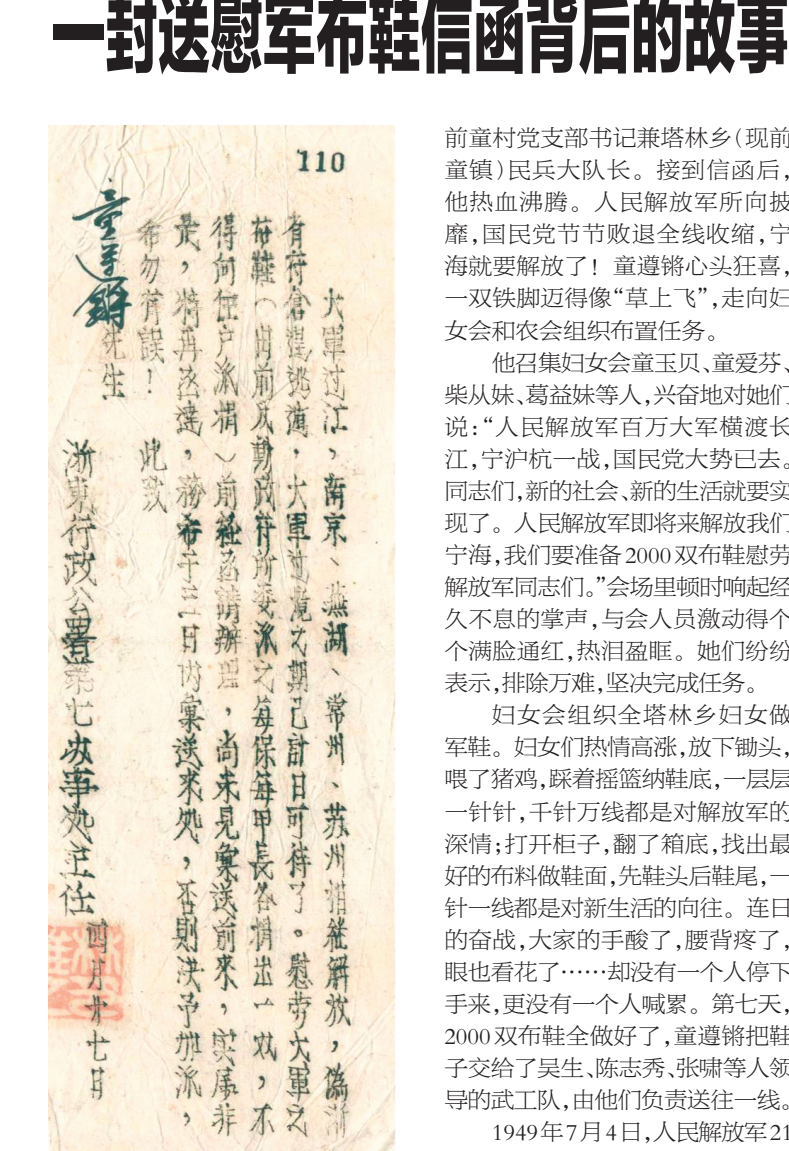 一封送慰军布鞋信函背后的故事
110
大軍过江，南京、蕪湖、常州、苏州相継解放，偽浙
省府倉惶逃遁，大軍过境之期已計日可待了。慰劳大軍之
布鞋（由前反動政府所委派之每保每甲長各捐出一双，不
得向住户派捐）前經函請辦理，尚未見彙送前來，实属非
是，特再函達，務希于三日内彙送來処，否則决予加派，
希勿有誤！ 此致
童遵鏘先生
浙東行政公署第七办事処主任 四月廿七日
前童村党支部书记兼塔林乡（现前
童镇）民兵大队长。接到信函后，
他热血沸腾。人民解放军所向披
靡，国民党节节败退全线收缩，宁
海就要解放了！童遵锵心头狂喜，
一双铁脚迈得像“草上飞”，走向妇
女会和农会组织布置任务。
他召集妇女会童玉贝、童爱芬、
柴从妹、葛益妹等人，兴奋地对她们
说：“人民解放军百万大军横渡长
江，宁沪杭一战，国民党大势已去。
同志们，新的社会、新的生活就要实
现了。人民解放军即将来解放我们
宁海，我们要准备2000双布鞋慰劳
解放军同志们。”会场里顿时响起经
久不息的掌声，与会人员激动得个
个满脸通红，热泪盈眶。她们纷纷
表示，排除万难，坚决完成任务。
妇女会组织全塔林乡妇女做
军鞋。妇女们热情高涨，放下锄头，
喂了猪鸡，踩着摇篮纳鞋底，一层层
一针针，千针万线都是对解放军的
深情；打开柜子，翻了箱底，找出最
好的布料做鞋面，先鞋头后鞋尾，一
针一线都是对新生活的向往。连日
的奋战，大家的手酸了，腰背疼了，
眼也看花了……却没有一个人停下
手来，更没有一个人喊累。第七天，
2000双布鞋全做好了，童遵锵把鞋
子交给了吴生、陈志秀、张啸等人领
导的武工队，由他们负责送往一线。
1949年7月4日，人民解放军21